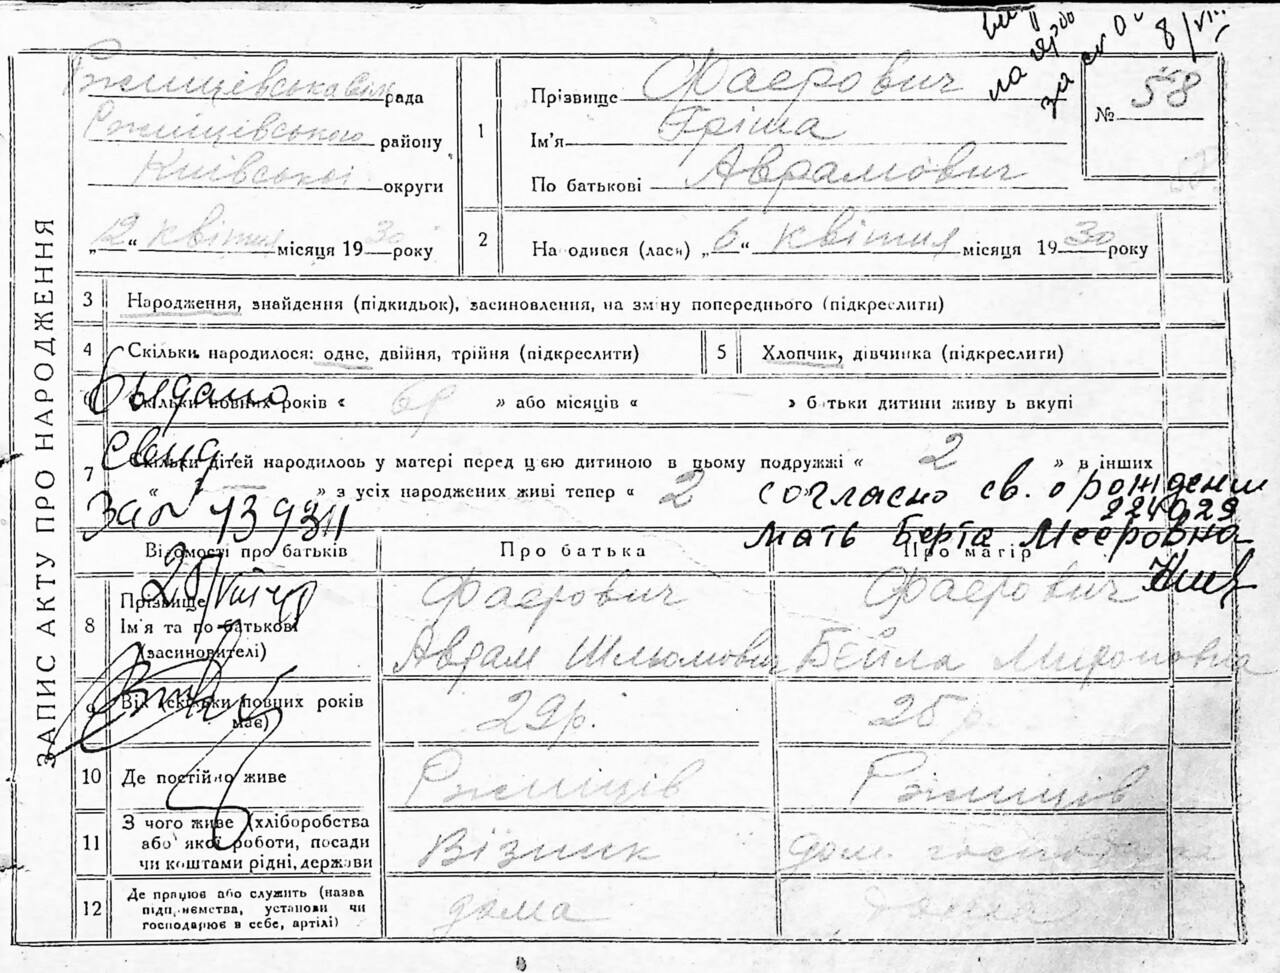 8/VII
ЗАПИС АКТУ ПРО НАРОДЖЕННЯ
Ржищівська рада
Ржищівського району
Київської округи
„12“ квітня місяця 1930 року
1 Прізвище Фаерович
Ім'я Гріша
По батькові Аврамович
№ 58
2 На одився (лася) „6“ квітня місяця 1930 року
3 Народження, знайдення (підкидьок), засиновлення, на зміну попереднього (підкреслити)
4 Скільки народилося: одне, двійня, трійня (підкреслити)
5 Хлопчик, дівчинка (підкреслити)
6 Скільки повних років « 6р » або місяців « » батьки дитини живуть вкупі
Выдано
7 Скільки дітей народилось у матері перед цією дитиною в цьому подружжі « 2 » в інших
« — » з усіх народжених живі тепер « 2
свид.
за № 139311
согласно св. о рождении
224029
мать Берта Мееровна
Відомості про батьків
Про батька
Про матір
8 Прізвище
Ім'я та по-батькові
(засиновителі)
Фаерович
Аврам Шлюмович
Фаерович
Бейла Мироновна
9 Вік (скільки повних років має)
29р.
25р.
10 Де постійно живе
Ржищів
Ржищів
11 З чого живе (хліборобства
або якої роботи, посади
чи коштами рідні, держави
Візник
дом. господарка
12 Де працює або служить (назва
підприємства, установи чи
господарює в себе, артілі)
дома
дома